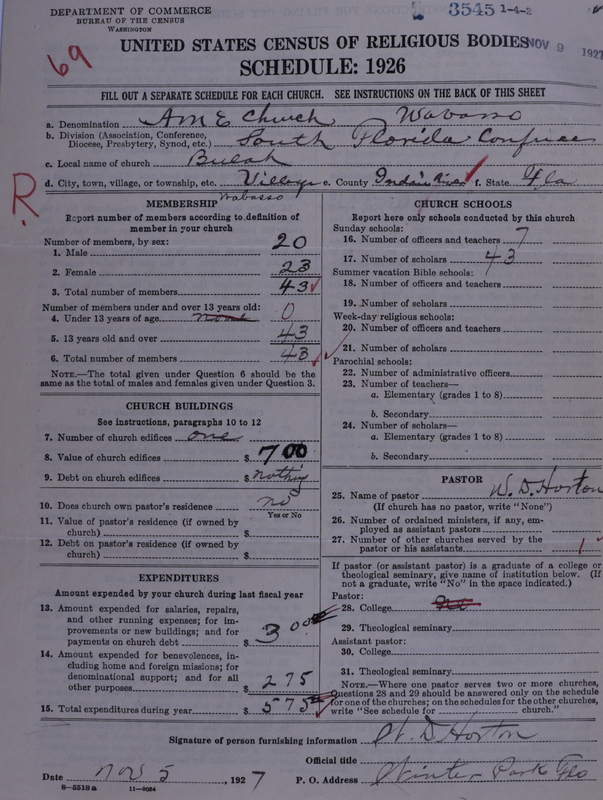 DEPARTMENT OF COMMERCE
BUREAU OF THE CENSUS
WASHINGTON
3545 1-4-2
NOV 9 1927
69
UNITED STATES CENSUS OF RELIGIOUS BODIES
SCHEDULE: 1926
FILL OUT A SEPARATE SCHEDULE FOR EACH CHURCH. SEE INSTRUCTIONS ON THE BACK OF THIS SHEET
a. Denomination A M E Church Wabasso
b. Division (Association, Conference, Diocese, Presbytery, Synod, etc.) South Florida Confrees
c. Local name of church Bulah
d. City, town, village, or township, etc. Village e. County Indian River f. State Fla
Wabasso
R.
MEMBERSHIP
Report number of members according to definition of member in your church
Number of members, by sex:
1. Male 20
2. Female 23
3. Total number of members 43
Number of members under and over 13 years old:
4. Under 13 years of age none 0
5. 13 years old and over 43
6. Total number of members 43
NOTE.—The total given under Question 6 should be the same as the total of males and females given under Question 3.
CHURCH BUILDINGS
See instructions, paragraphs 10 to 12
7. Number of church edifices one
8. Value of church edifices $ 700
9. Debt on church edifices $ nothing
10. Does church own pastor's residence no
Yes or No
11. Value of pastor's residence (if owned by church) $
12. Debt on pastor's residence (if owned by church) $
EXPENDITURES
Amount expended by your church during last fiscal year
13. Amount expended for salaries, repairs, and other running expenses; for improvements or new buildings; and for payments on church debt $ 300
14. Amount expended for benevolences, including home and foreign missions; for denominational support; and for all other purposes $ 275
15. Total expenditures during year $ 575
CHURCH SCHOOLS
Report here only schools conducted by this church
Sunday schools:
16. Number of officers and teachers 7
17. Number of scholars 43
Summer vacation Bible schools:
18. Number of officers and teachers
19. Number of scholars
Week-day religious schools:
20. Number of officers and teachers
21. Number of scholars
Parochial schools:
22. Number of administrative officers
23. Number of teachers—
a. Elementary (grades 1 to 8)
b. Secondary
24. Number of scholars—
a. Elementary (grades 1 to 8)
b. Secondary
PASTOR
25. Name of pastor W. D. Horton
(If church has no pastor, write "None")
26. Number of ordained ministers, if any, employed as assistant pastors
27. Number of other churches served by the pastor or his assistants 1
If pastor (or assistant pastor) is a graduate of a college or theological seminary, give name of institution below. (If not a graduate, write "No" in the space indicated.)
Pastor:
28. College No
29. Theological seminary
Assistant pastor:
30. College
31. Theological seminary
NOTE.—Where one pastor serves two or more churches, Questions 28 and 29 should be answered only on the schedule for one of the churches; on the schedules for the other churches, write "See schedule for church."
Signature of person furnishing information W. D. Horton
Official title
Date Nov 5, 1927 P. O. Address Winter Park Flo
8-5518a 11-9054